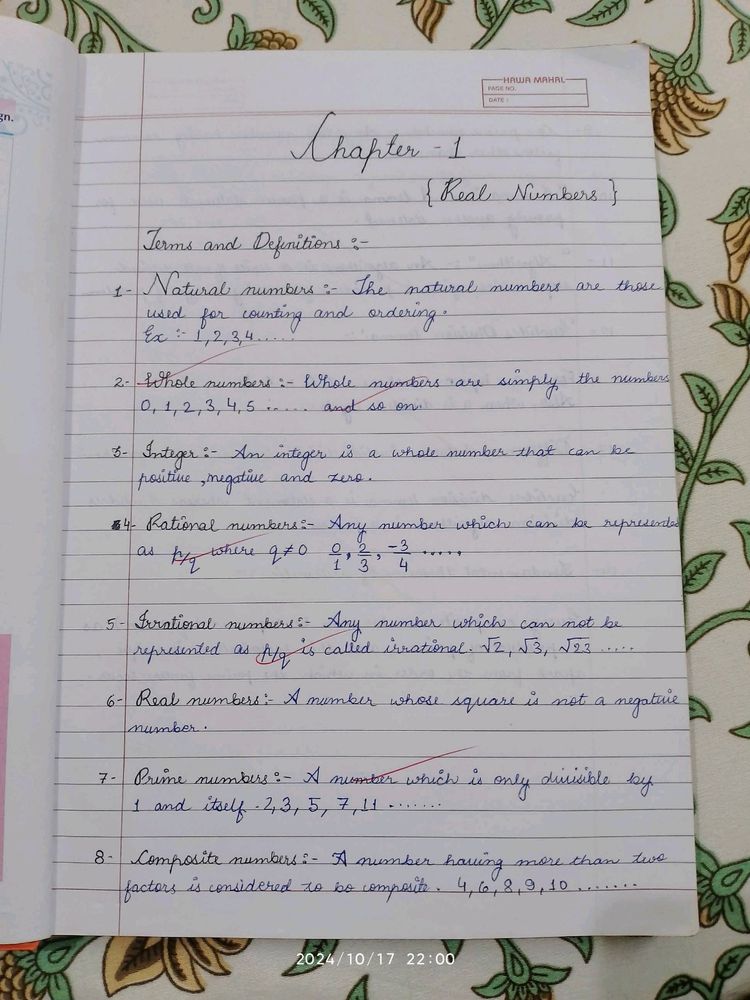 gn.
HAWA MAHAL
PAGE NO.
DATE :
Chapter - 1
{ Real Numbers }
Terms and Definitions :-
1- Natural numbers :- The natural numbers are those
used for counting and ordering.
Ex :- 1,2,3,4.....
2- Whole numbers :- Whole numbers are simply the numbers
0, 1, 2, 3, 4, 5 ...... and so on.
3- Integer :- An integer is a whole number that can be
positive, negative and zero.
4- Rational numbers :- Any number which can be represented
as p/q where q≠0 0/1, 2/3, -3/4 .....
5- Irrational numbers :- Any number which can not be
represented as p/q is called irrational. √2, √3, √23 .....
6- Real numbers :- A number whose square is not a negative
number.
7- Prime numbers :- A number which is only divisible by
1 and itself. 2, 3, 5, 7, 11 .......
8- Composite numbers :- A number having more than two
factors is considered to be composite. 4, 6, 8, 9, 10 .......
2024/10/17 22:00